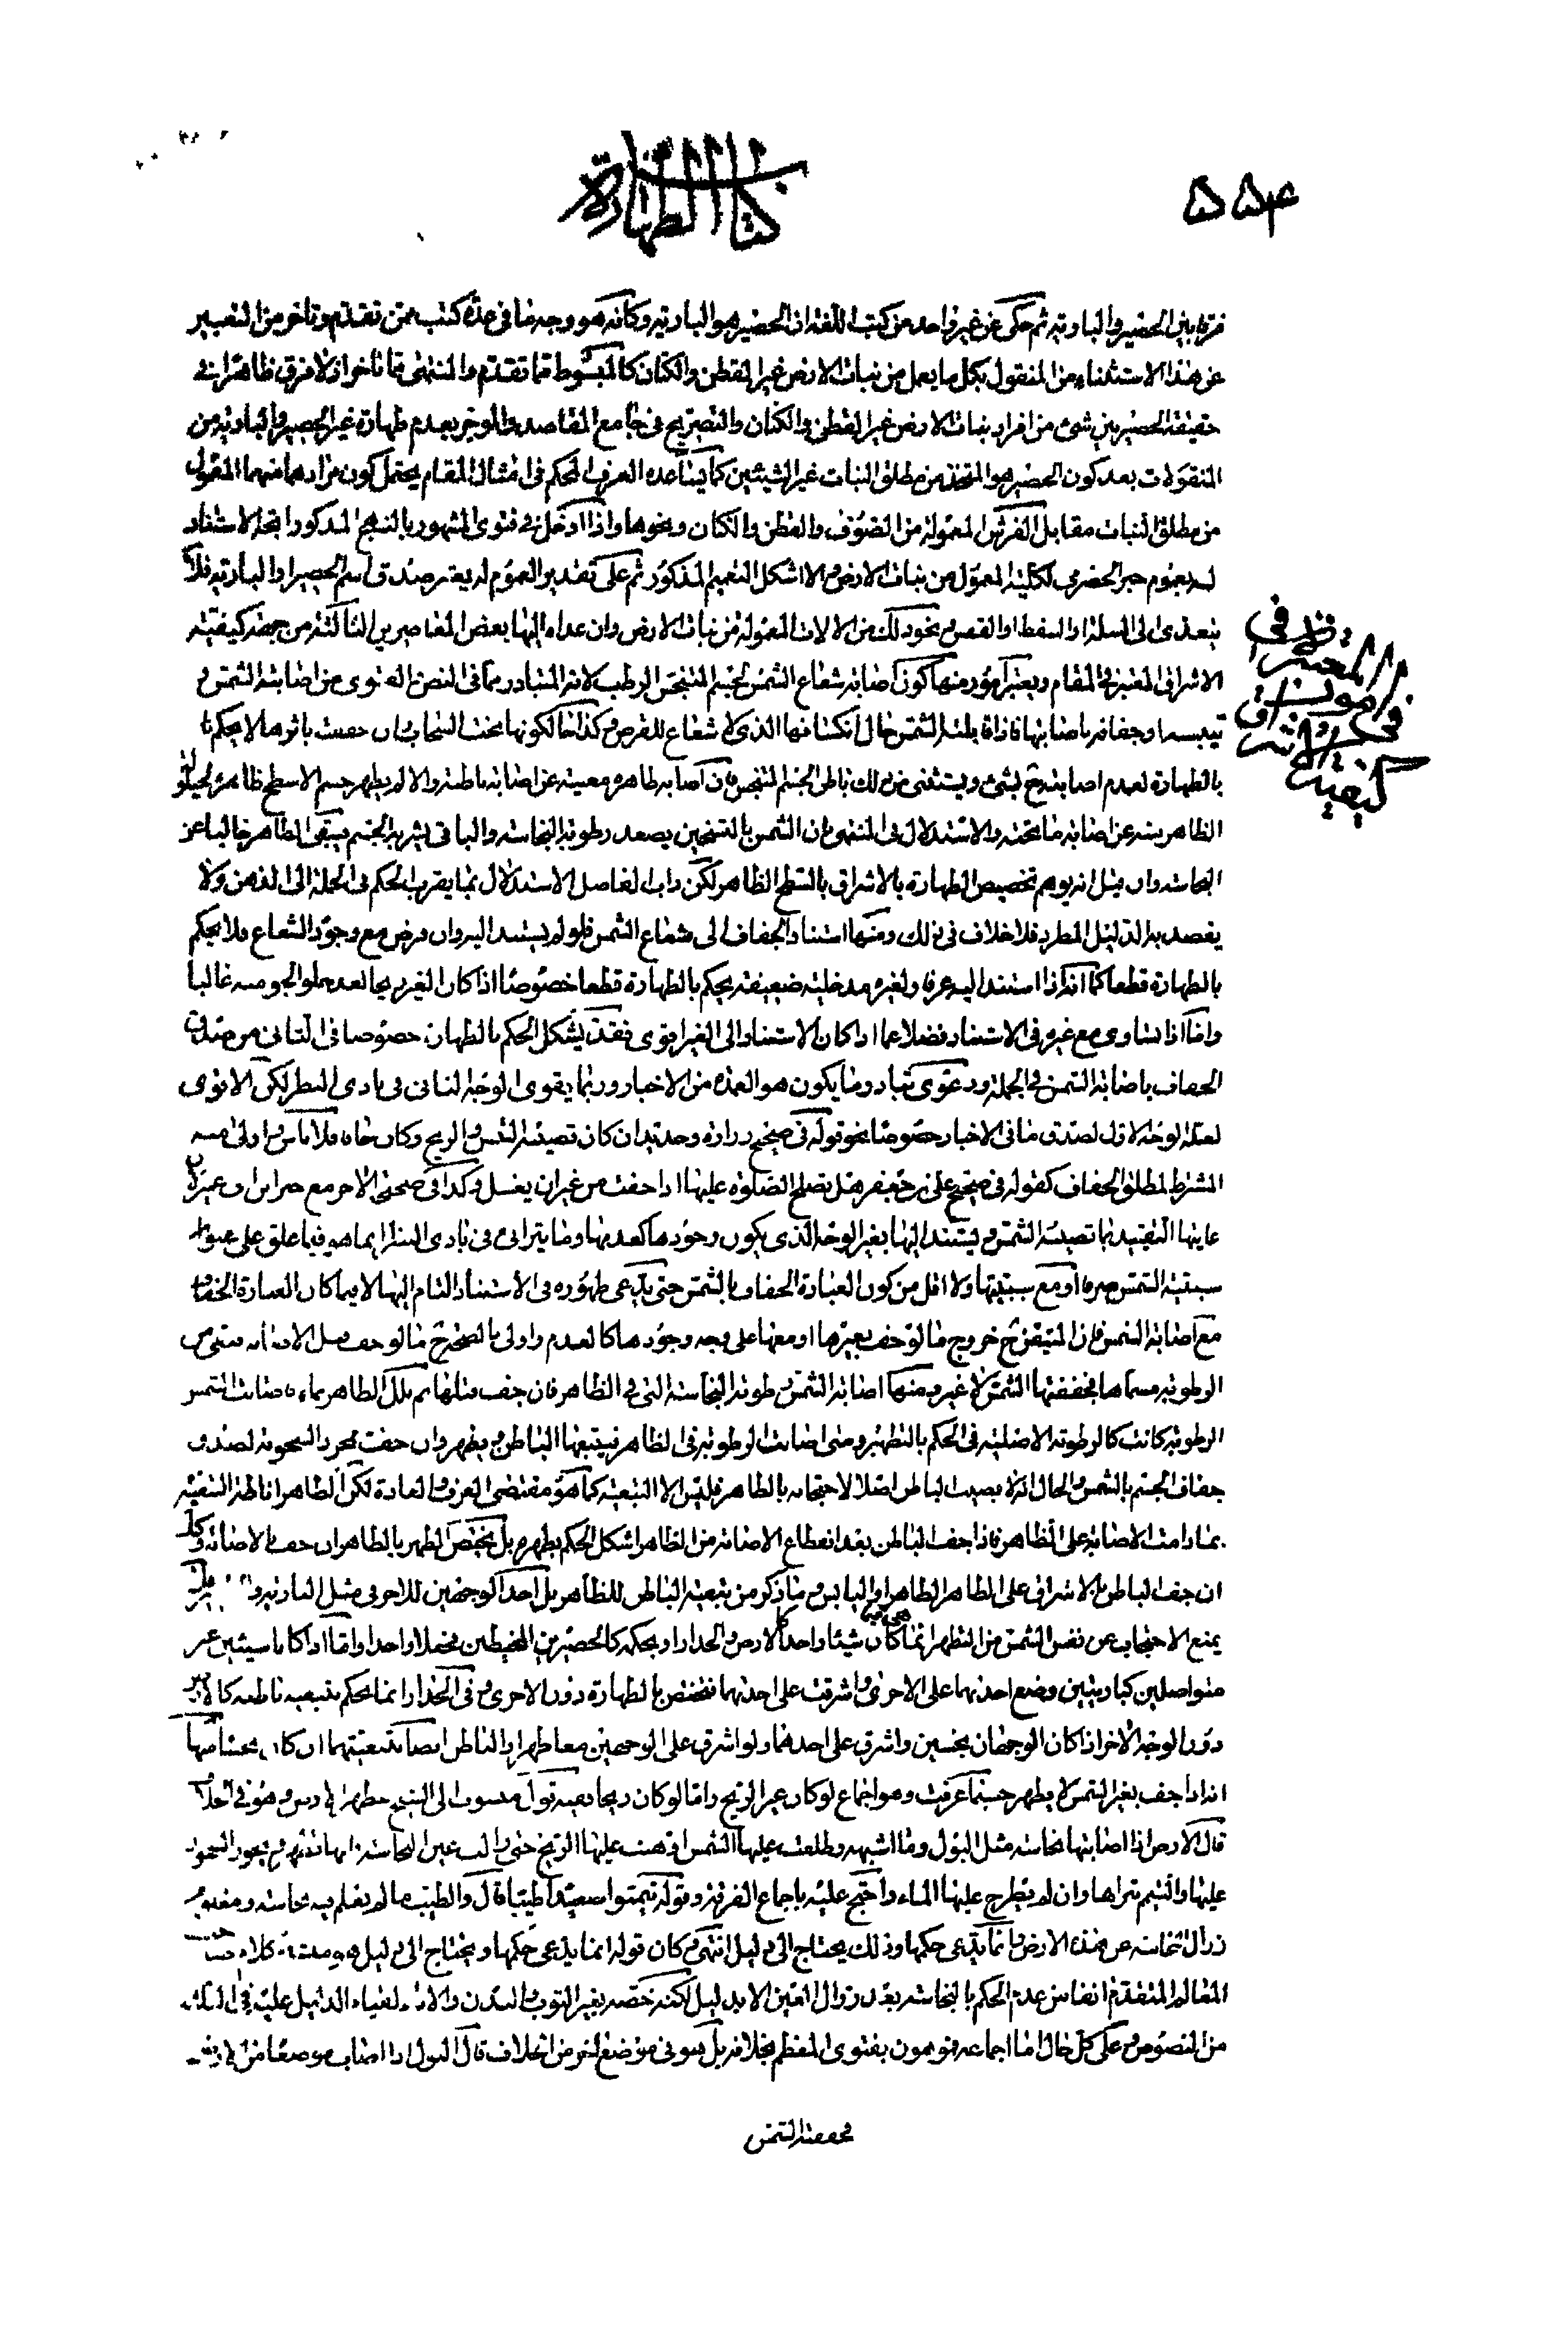 ۵۵۴
كتاب الطهارة
فرق بين الحصير والبارية ثم حكى عن غير واحد من كتب اللغة ان الحصير هو البارية وكانه هو وجه ما في عدة كتب ممن تقدم وتاخر من التعبير
عن هذا الاستثناء من المنقول بكل ما يعمل من نبات الارض غير القطن والكتان كالمبسوط مما تقدم والمنتهى مما تاخر اذ لا فرق ظاهرا في
حقيقة الحصير بين شئ من افراد نبات الارض غير القطن والكتان والتصريح في جامع المقاصد والموجز بعدم طهارة غير الحصير والبارية من
المنقولات بعد كون الحصير هو المتخذ من مطلق النبات غير الشيئين كما يساعده العرف المحكم في امثال المقام يحتمل كون مرادهما منهما المعمول
من مطلق النبات مقابل الفرش المعمولة من الصوف والقطن والكتان ونحوها واذا ادخل في فتوى المشهور بالنهج المذكور اتجه الاستناد
له بعموم خبر الحضرمي لكلية المعمول من نبات الارض والا اشكل التعميم المذكور ثم على تقدير العموم له يعتبر صدق اسم الحصير او البارية فلا
يتعدى الى السلة او السفط او القفص ونحو ذلك من الالات المعمولة من نبات الارض وان عداه اليها بعض المعاصرين الثالثة من جهة كيفية
الاشراق المعتبر في المقام ويعتبر امور منها كون اصابة شعاع الشمس لجسم المتنجس الرطب لانه المتبادر مما في النص والفتوى من اصابة الشمس و
تيبيسها وجفافه باصابتها فاذا قابلته الشمس حال انكسافها الذي لا شعاع للقرص وكذا حالكونها تحت السحاب وان جففت باثرها لا يحكم
بالطهارة لعدم اصابته ح بشئ ويستثنى من ذلك باطن الجسم المتنجس فان اصابة ظاهره مغنية عن اصابة باطنه والا لم يطهر جسم الا سطح ظاهره لحيلولة
الظاهر منه عن اصابة ما تحته والاستدلال في المنتهى بان الشمس بالتسخين يصعد رطوبة النجاسة والباقي يشربه الجسم فيبقى الظاهر خاليا عن
النجاسة وان قيل انه يوهم تخصيص الطهارة بالاشراق بالسطح الظاهر لكن داب الفاضل الاستدلال بما يقرب الحكم في الجملة الى الذهن ولا
يقصد به الدليل المطرد فلا خلاف في ذلك ومنها استناد الجفاف الى شعاع الشمس فلو لم يستند اليه وان فرض مع وجود الشعاع فلا يحكم
بالطهارة قطعا كما انه اذا استند اليه عرفا ولغيره مدخلية ضعيفة يحكم بالطهارة قطعا خصوصا اذا كان الغير ريحا لعدم خلو الجو منه غالبا
واما اذا تساوى مع غيره في الاستناد فضلا عما اذا كان الاستناد الى الغير اقوى فقد يشكل الحكم بالطهارة خصوصا في الثاني من صدق
الجفاف باصابة الشمس في الجملة ودعوى تبادر ما يكون هو العمدة من الاخبار وربما يقوى الوجه الثاني في بادى النظر لكن الاقوى
لعله الوجه الاول لصدق ما في الاخبار خصوصا نحو قوله في صحيح زرارة وحديد ان كان تصيبه الشمس والريح وكان جافا فلا باس واولى منه
المشترط لمطلق الجفاف كقوله في صحيح علي بن جعفر هل يصلح الصلوة عليها اذا جفت من غير ان يغسل وكذا في صحيحه الاخر
غايتها التقييد بما تصيبه الشمس ويستند اليها بغير الوجه الذي يكون وجودها كعدمها وما يترائى في بادى النظر انما هو فيما علق على عنوان
سببية الشمس صرفا او مع سببيتها ولا اقل من كون العبارة الجفاف بالشمس حتى يدعى ظهوره في الاستناد التام اليها لا فيما كان العبارة الجفاف
مع اصابة الشمس فان المتيقن ح خروج ما لو جف بغيرها او معها على وجه وجودها كالعدم واولى بالصحة ح ما لو جف قبل الاصابة
الرطوبة مسماها فجففتها الشمس لا غير ومنها اصابة الشمس رطوبة النجاسة التي في الظاهر فان جف قبلها ثم بلل الظاهر بماء فاصابت الشمس
الرطوبة كانت كالرطوبة الاصلية في الحكم بالتطهير ومتى اصابت الرطوبة في الظاهر فيتبعها الباطن ويطهر وان جفت بمجرد السخونة لصدق
جفاف الجسم بالشمس والحال انه لا يصيب الباطن اصلا لاحتجابه بالظاهر فليس الا التبعية كما هو مقتضى العرف والعادة لكن الظاهر اناطة التبعية
بما دامت الاصابة على الظاهر فاذا جف الباطن بعد انقطاع الاصابة من الظاهر اشكل الحكم بطهره بل يختص الطهر بالظاهر ان جف بالاصابة وكذا
ان جف الباطن بالاشراق على الظاهر الطاهر او اليابس وما ذكر من تبعية الباطن للظاهر بل احد الوجهين للاخر في مثل البارية
يمنع الاحتجاب عن نفس الشمس من التطهر انما كان هي فيه شيئا واحدا كالارض والجدار او بحكمه كالحصيرين المخيطين فجعلا واحدا واما اذا كانا شيئين غير
متواصلين كباريتين وضع احدهما على الاخرى واشرقت على احدهما فتختص بالطهارة دون الاخرى وفي الجدار انما يحكم بتبعية باطنه كالاجر
دون الوجه الاخر اذا كان الوجهان نجسين واشرق على احدهما ولو اشرق على الوجهين معا طهرا والباطن ايضا بتبعيتهما ان كان نجسا منها
انه اذا جف بغير الشمس لا يطهر حسبما عرفت وهو اجماع لو كان غير الريح واما لو كان ريحا ففيه قول منسوب الى الشيخ
قال الارض اذا اصابتها نجاسة مثل البول وما اشبهه وطلعت عليها الشمس او هبت عليها الريح حتى زالت عين النجاسة فانها تطهر ويجوز السجود
عليها والتيمم بترابها وان لم يطرح عليها الماء واحتج عليه باجماع الفرقة وقوله تيمموا صعيدا طيبا قال والطيب ما لم يعلم فيه نجاسة ومعلوم
زوال النجاسة عن هذه الارض وانما يدعى حكمها وذلك يحتاج الى دليل انتهى وكان قوله انما يدعى حكمها ويحتاج الى دليل
المقالة المتقدم انفا من عدم الحكم بالنجاسة بعد زوال العين الا بدليل لكنه خصه بغير الثوب والبدن والاناء لقيام الدليل عليه في الثلاثة
من النصوص وعلى كل حال اما اجماعه فموهون بفتوى المعظم بخلافه بل هو في موضع اخر من الخلاف قال البول اذا اصاب موضعا من الارض
فجففته الشمس